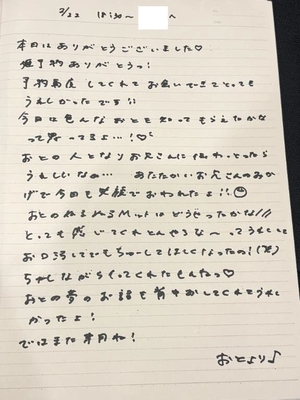 2/22 18:30〜 へ
本日はありがとうございました♡
姫予約ありがとっ!
予約馬庋してくれてお会いできてとっても
うれしかったです!!
今日は色んなおとを知ってもらえたかな
って思ってるよ…!♡
おとの人となりお兄さんに伝わっとったら
うれしいなの… あたたかいお兄さんのおか
げで今日も笑顔でおわれたよ!!☺
おとのぬるぬるMットはどうやったかな///
とっても感じてくれとんやな〜ってうれしいと
お口が してでもちゅーしてほしくなったの!(笑)
ちゅしながらイってくれたもんねっ♡
おとの夢のお話も背中おしてくれてうれし
かったよ!
ではまた来月ね!
おとより♪